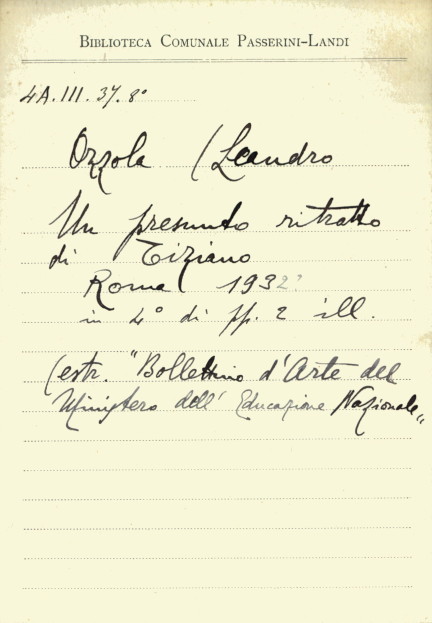 BIBLIOTECA COMUNALE PASSERINI-LANDI
4A.III.37.8°
Ozzola (Leandro
Un presunto ritratto
di Tiziano
Roma 1932?
in 4° di pp. 2 ill.
(estr. "Bollettino d'Arte del
Ministero dell' Educazione Nazionale„